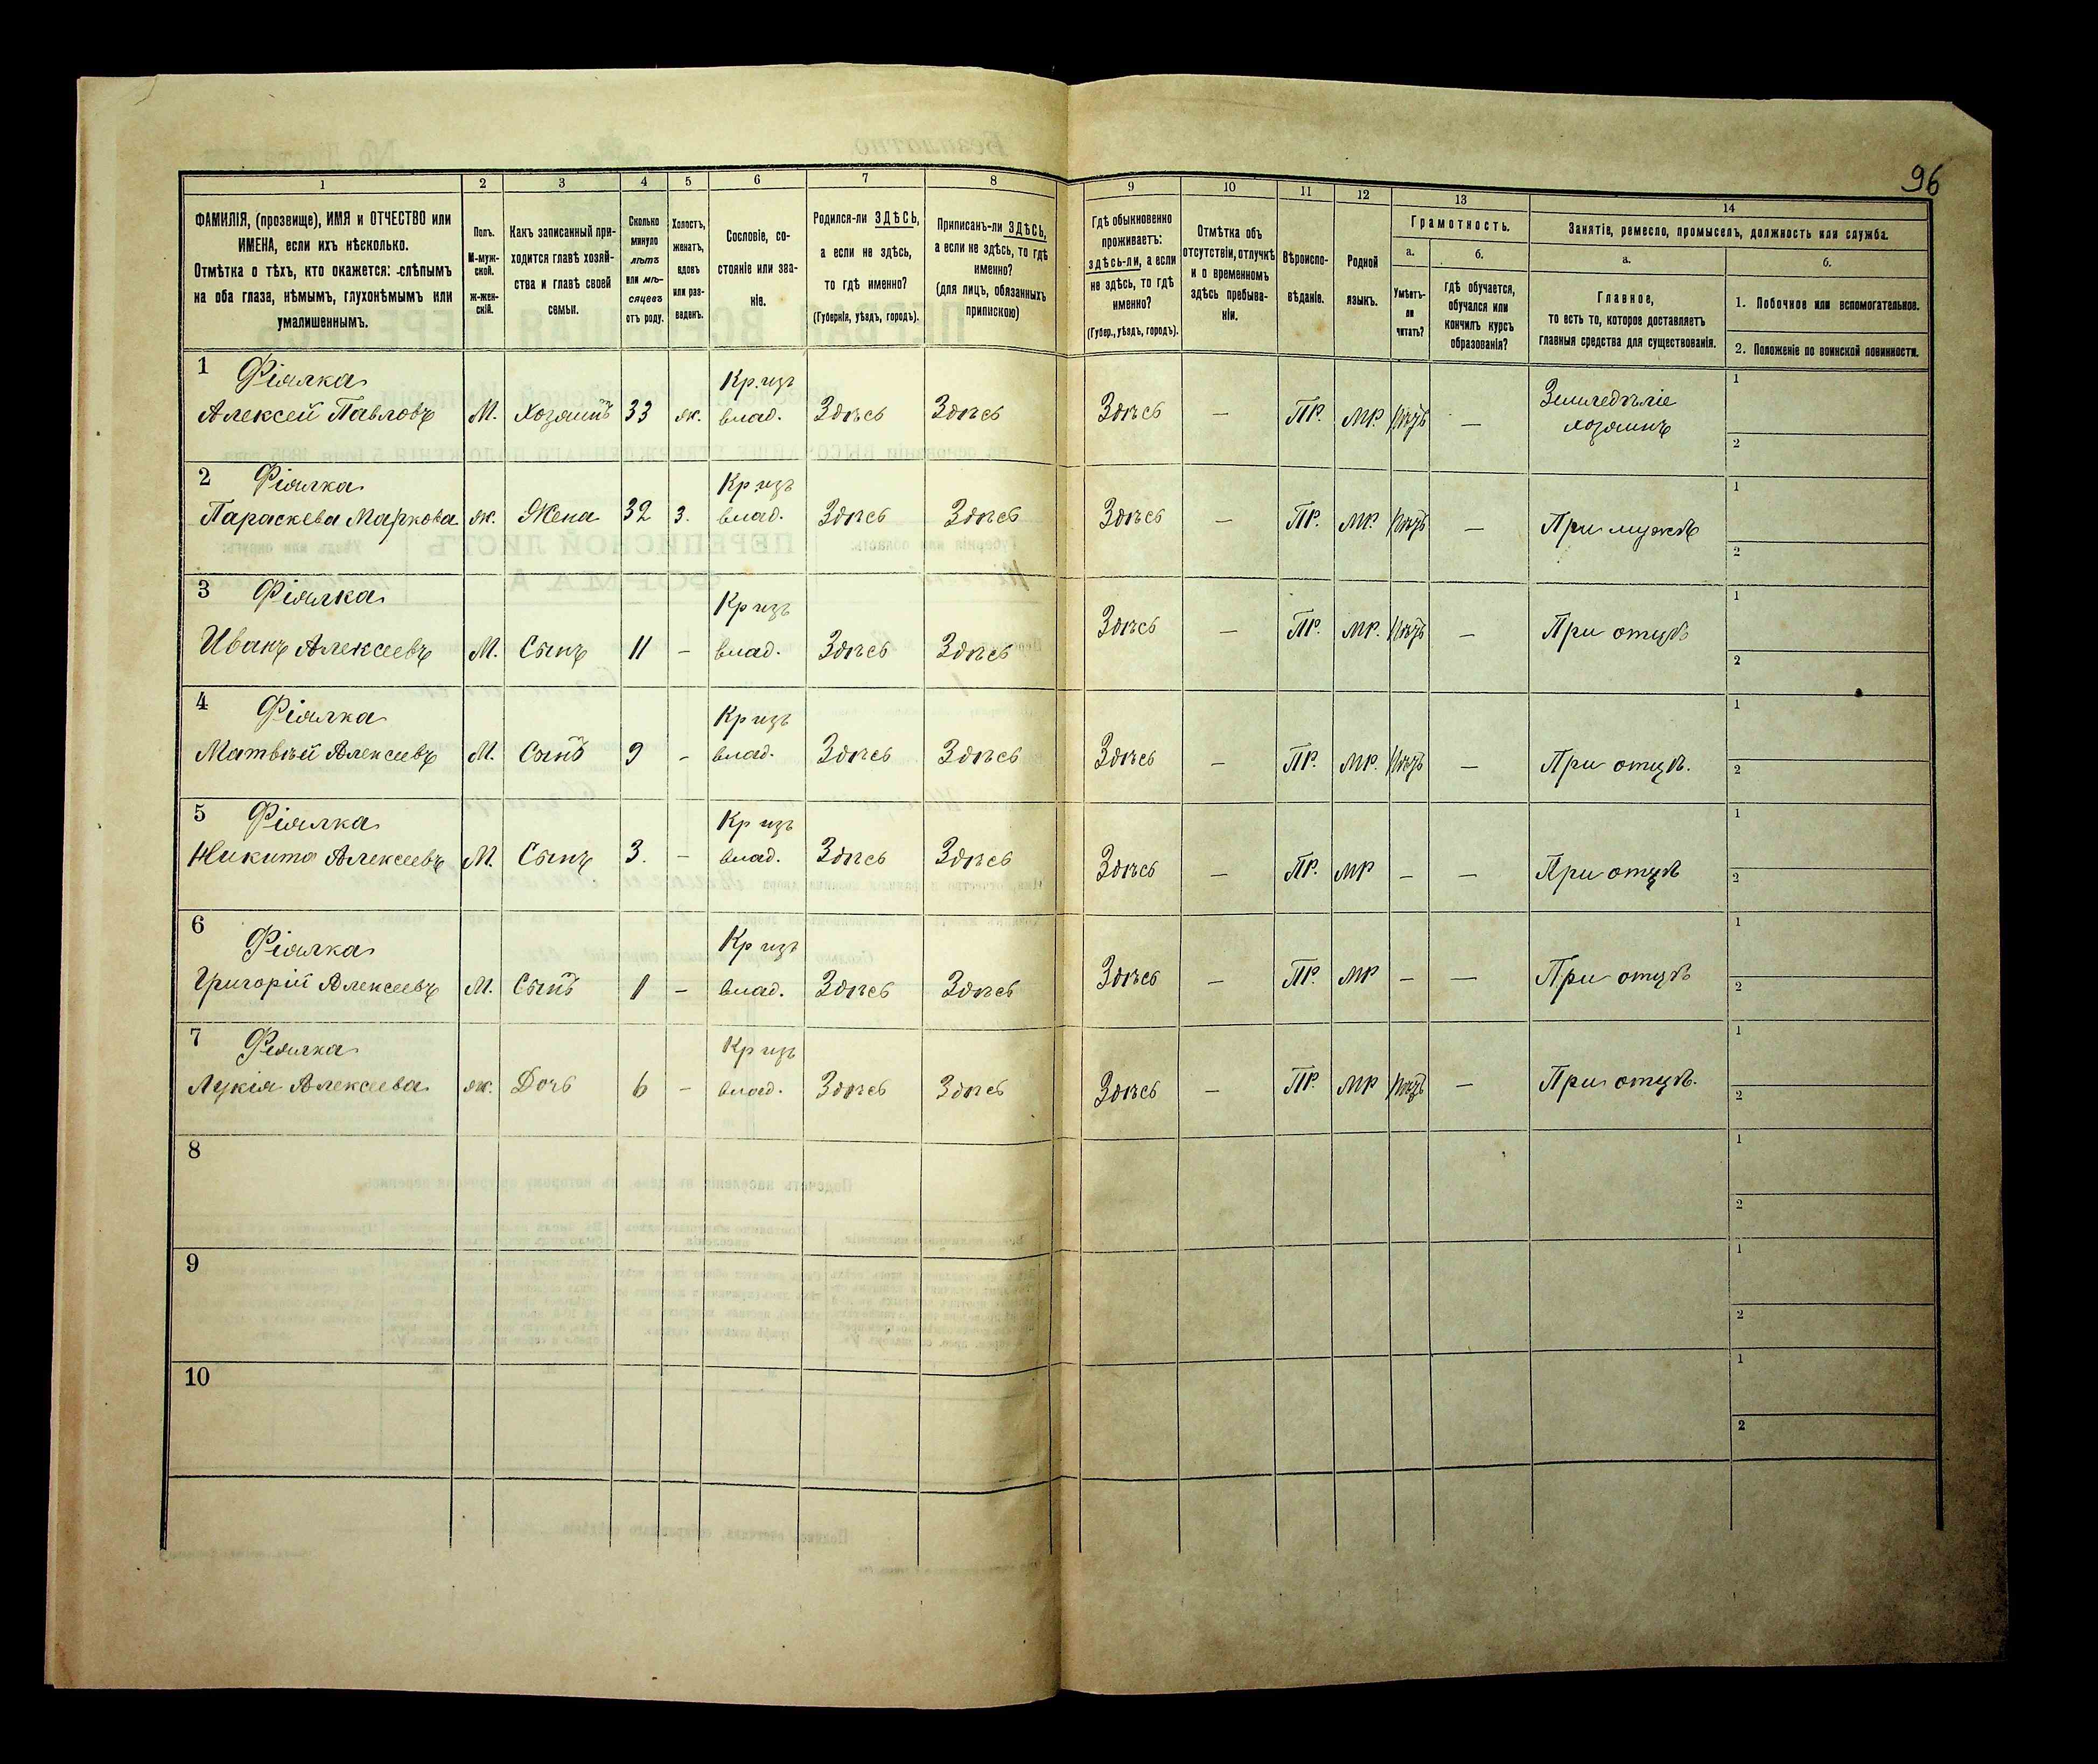 96
1 2 3 4 5 6 7 8 9 10 11 12 13 14
ФАМИЛІЯ, (прозвище), ИМЯ и ОТЧЕСТВО или
ИМЕНА, если ихъ нѣсколько.
Отмѣтка о тѣхъ, кто окажется: слѣпымъ
на оба глаза, нѣмымъ, глухонѣмымъ или
умалишеннымъ.
Полъ.
М-муж-
ской.
Ж-жен-
скій.
Какъ записанный при-
ходится главѣ хозяй-
ства и главѣ своей
семьи.
Сколько
минуло
лѣтъ
или мѣ-
сяцевъ
отъ роду.
Холостъ,
женатъ,
вдовъ
или раз-
веденъ.
Сословіе, со-
стояніе или зва-
ніе.
Родился-ли ЗДѢСЬ,
а если не здѣсь,
то гдѣ именно?
(Губернія, уѣздъ, городъ).
Приписанъ-ли ЗДѢСЬ,
а если не здѣсь, то гдѣ
именно?
(для лицъ, обязанныхъ
припискою)
Гдѣ обыкновенно
проживаетъ:
здѣсь-ли, а если
не здѣсь, то гдѣ
именно?
(Губер., уѣздъ, городъ).
Отмѣтка объ
отсутствіи, отлучкѣ
и о временномъ
здѣсь пребыва-
ніи.
Вѣроиспо-
вѣданіе.
Родной
языкъ.
Грамотность.
а.
Умѣетъ-
ли
читать?
б.
гдѣ обучается,
обучался или
кончилъ курсъ
образованія?
Занятіе, ремесло, промыселъ, должность или служба.
а.
Главное,
то есть то, которое доставляетъ
главныя средства для существованія.
б.
1. Побочное или вспомогательное.
2. Положеніе по воинской повинности.
1 Фіялка Кр. изъ Земледѣліе 1
Алексей Павловъ М. Хозяинъ 33 ж. влад. Здѣсь Здѣсь Здѣсь — ПР. МР. — хозяинъ
2
2 Фіялка Кр изъ 1
Параскева Маркова ж. Жена 32 з. влад. Здѣсь Здѣсь Здѣсь — ПР. МР. — При мужѣ
2
3 Фіялка Кр изъ 1
Иванъ Алексеевъ М. Сынъ 11 - влад. Здѣсь Здѣсь Здѣсь — ПР. МР. — При отцѣ
2
4 Фіялка Кр изъ 1
Матвѣй Алексеевъ М. Сынъ 9 - влад. Здѣсь Здѣсь Здѣсь — ПР. МР. — При отцѣ.
2
5 Фіялка Кр изъ 1
Никита Алексеевъ М. Сынъ 3. - влад. Здѣсь Здѣсь Здѣсь — ПР. МР - — При отцѣ
2
6 Фіялка Кр изъ 1
Григорій Алексеевъ М. Сынъ 1 - влад. Здѣсь Здѣсь Здѣсь — ПР. МР - — При отцѣ
2
7 Фіялка Кр изъ 1
Лукія Алексеева ж. Дочь 6 - влад. Здѣсь Здѣсь Здѣсь — ПР. МР — При отцѣ.
2
8 1
2
9 1
2
10 1
2